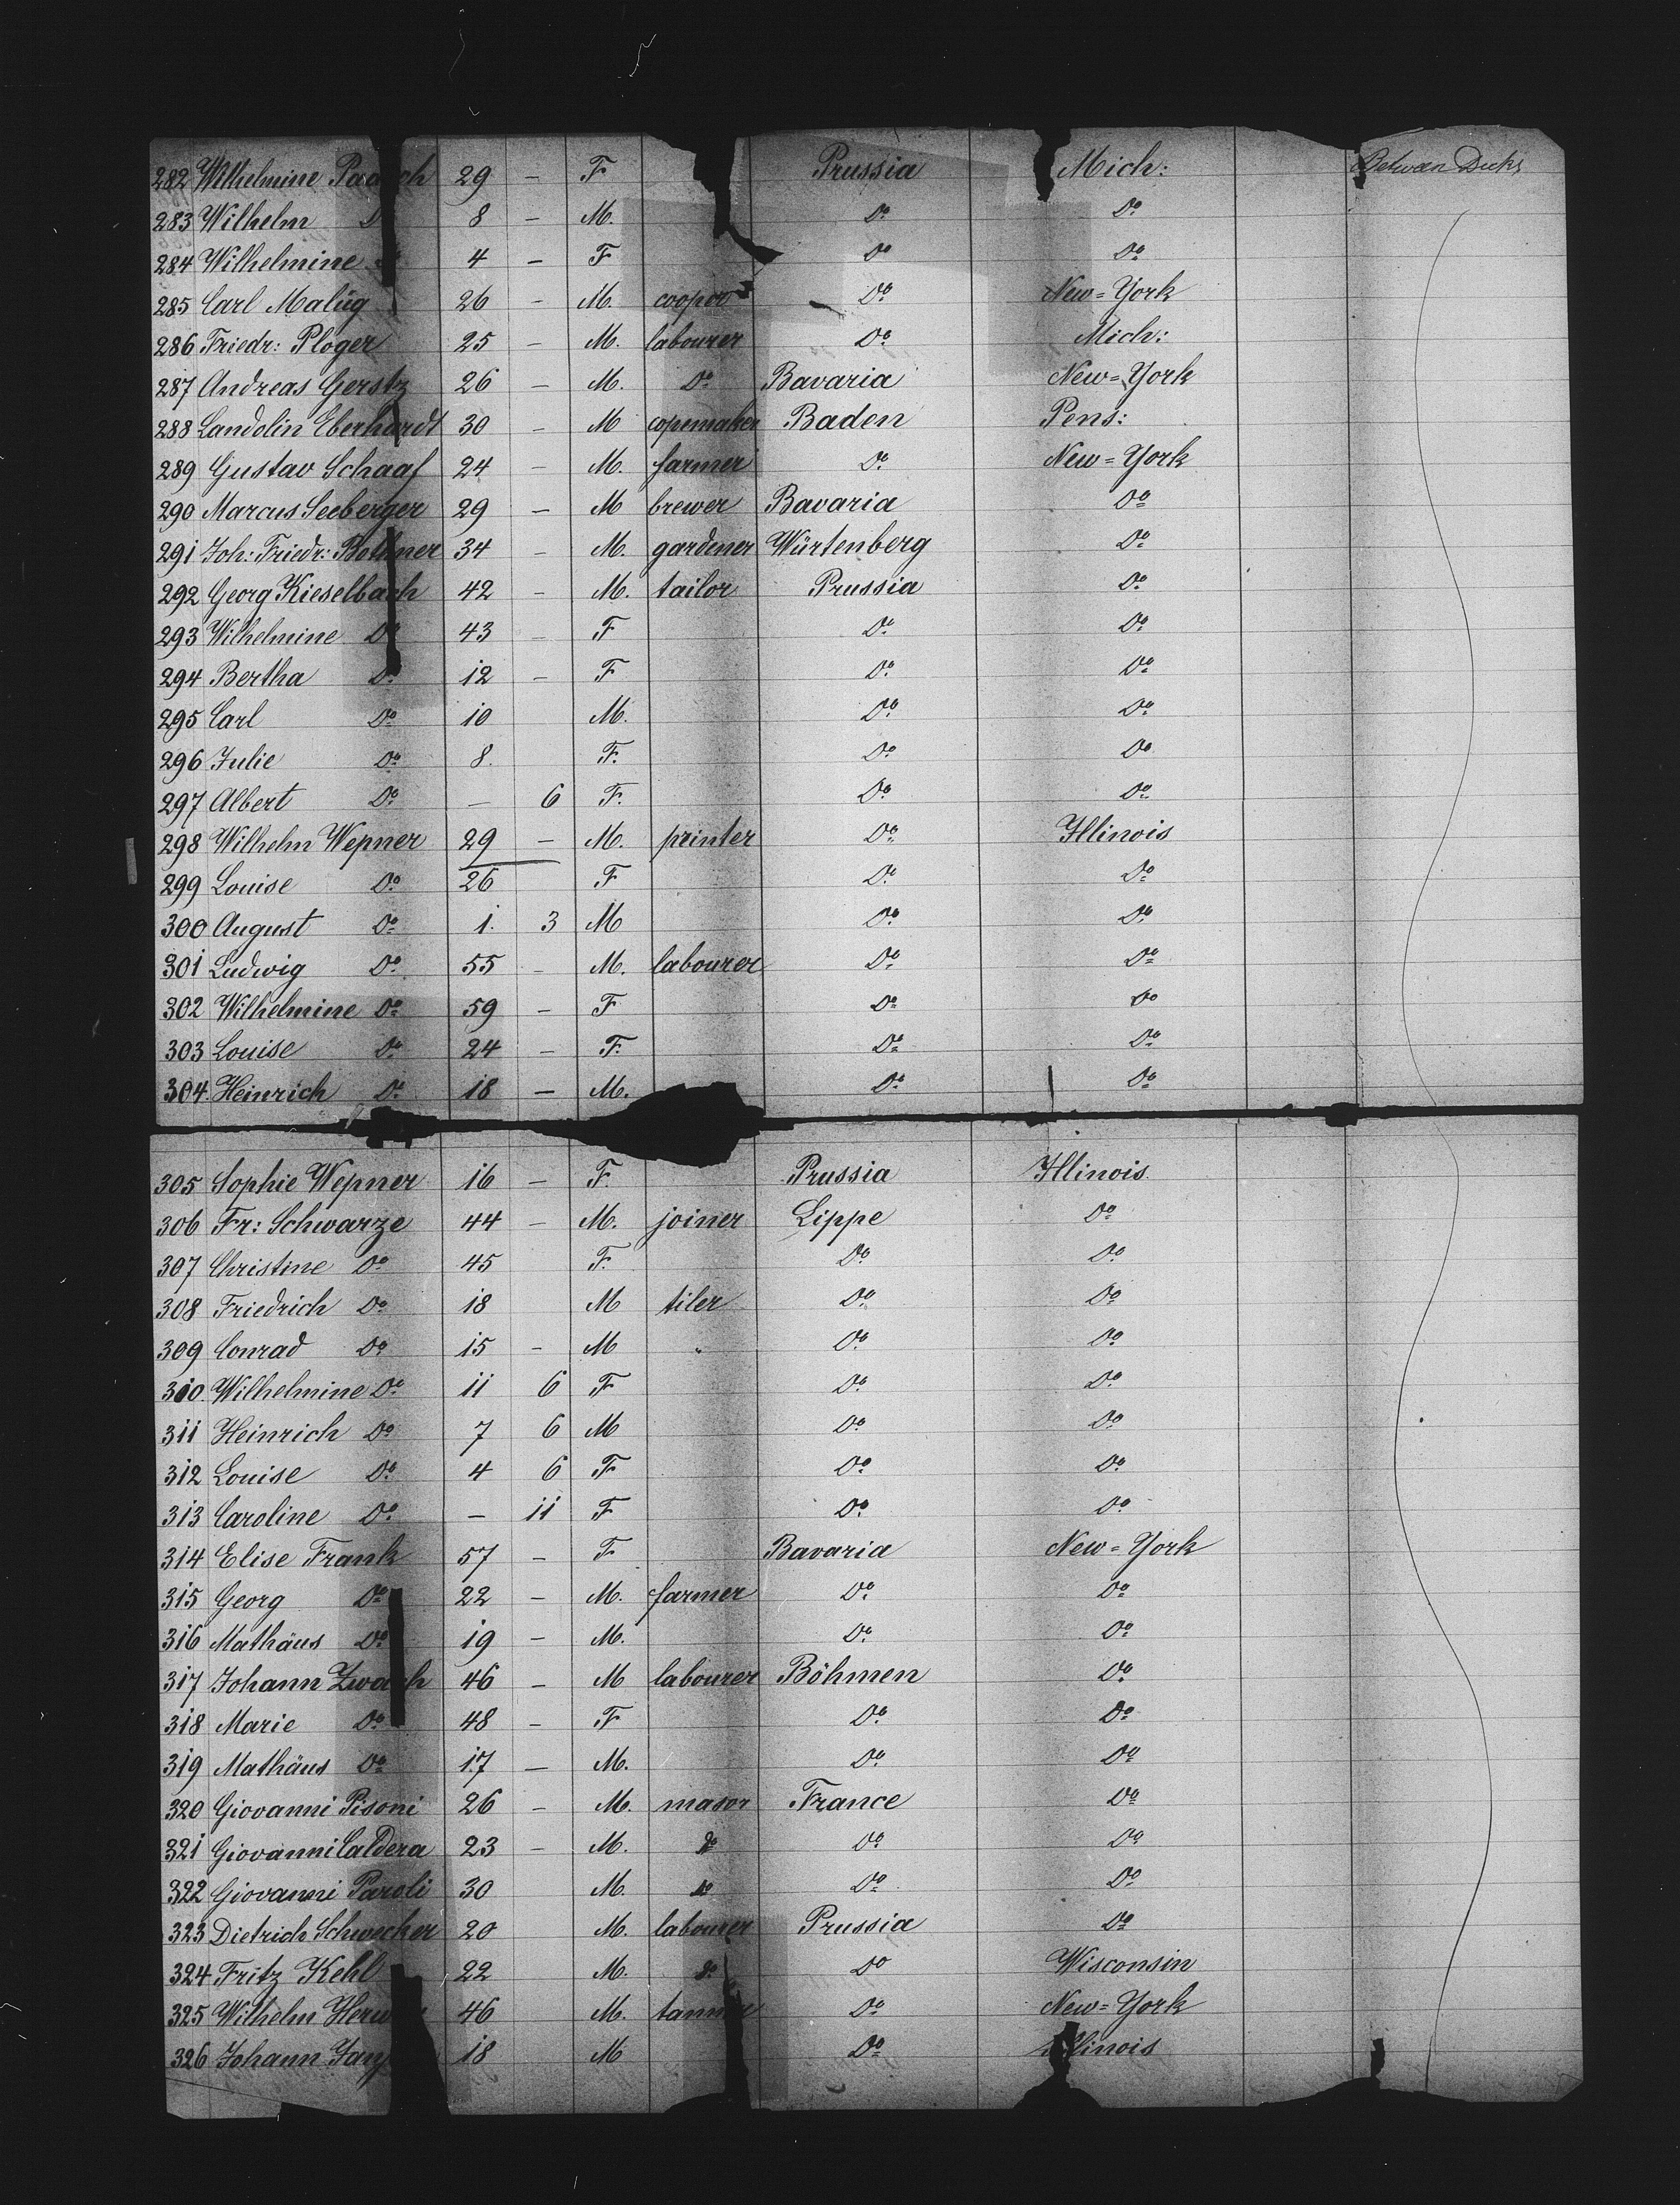 282 Wilhelmine Paasch 29 – F Prussia Mich: Betwen Decks
283 Wilhelm Do 8 – M. Do Do
284 Wilhelmine 4 – F Do Do
285 Carl Malüg 26 – M. cooper Do New=York
286 Friedr: Plöger 25 – M. labourer Do Mich:
287 Andreas Gerstz 26 – M. Do Bavaria New=York
288 Landolin Eberhardt 30 – M copemaker Baden Pens:
289 Gustav Schaaf 24 – M. farmer Do New=York
290 Marcus Seeberger 29 – M brewer Bavaria Do
291 Joh: Friedr: 34 – M. gardener Würtenberg Do
292 Georg Kieselbach 42 – M. tailor Prussia Do
293 Wilhelmine Do 43 – F Do Do
294 Bertha Do 12 – F Do Do
295 Carl Do 10 M. Do Do
296 Julie Do 8. F. Do Do
297 Albert Do – 6 F. Do Do
298 Wilhelm Wepner 29 – M. printer Do Illinois
299 Louise Do 26 F Do Do
300 August Do 1. 3 M Do Do
301 Ludwig Do 55 – M. labourer Do Do
302 Wilhelmine Do 59 – F Do Do
303 Louise Do 24 – F. Do Do
304. Heinrich Do 18 – M. Do Do
305 Sophie Wepner 16 – F Prussia Illinois
306 Fr: Schwarze 44 – M. joiner Lippe Do
307 Christine Do 45 F. Do Do
308 Friedrich Do 18 M tiler Do Do
309 Conrad Do 15 – M " Do Do
310. Wilhelmine Do 11 6 F Do Do
311 Heinrich Do 7 6 M Do Do
312 Louise Do 4 6 F Do Do
313 Caroline Do – 11 F Do Do
314 Elise Frank 57 – F Bavaria New=York
315 Georg Do 22 – M. farmer Do Do
316 Mathäus Do 19 – M. Do Do
317 Johann Zwach 46 – M labourer Böhmen Do
318 Marie Do 48 – F Do Do
319 Mathäus Do 17 – M. Do Do
320 Giovanni Pisoni 26 – M. mason France Do
321 Giovanni Caldera 23 – M. do Do Do
322 Giovanni Paroli 30 M. do Do Do
323 Dietrich Schwecher 20 M. labourer Prussia Do
324 Fritz Kehl 22 M. do Do Wisconsin
325 Wilhelm 46 M. tanner Do New=York
326 Johann 18 M Do Illinois